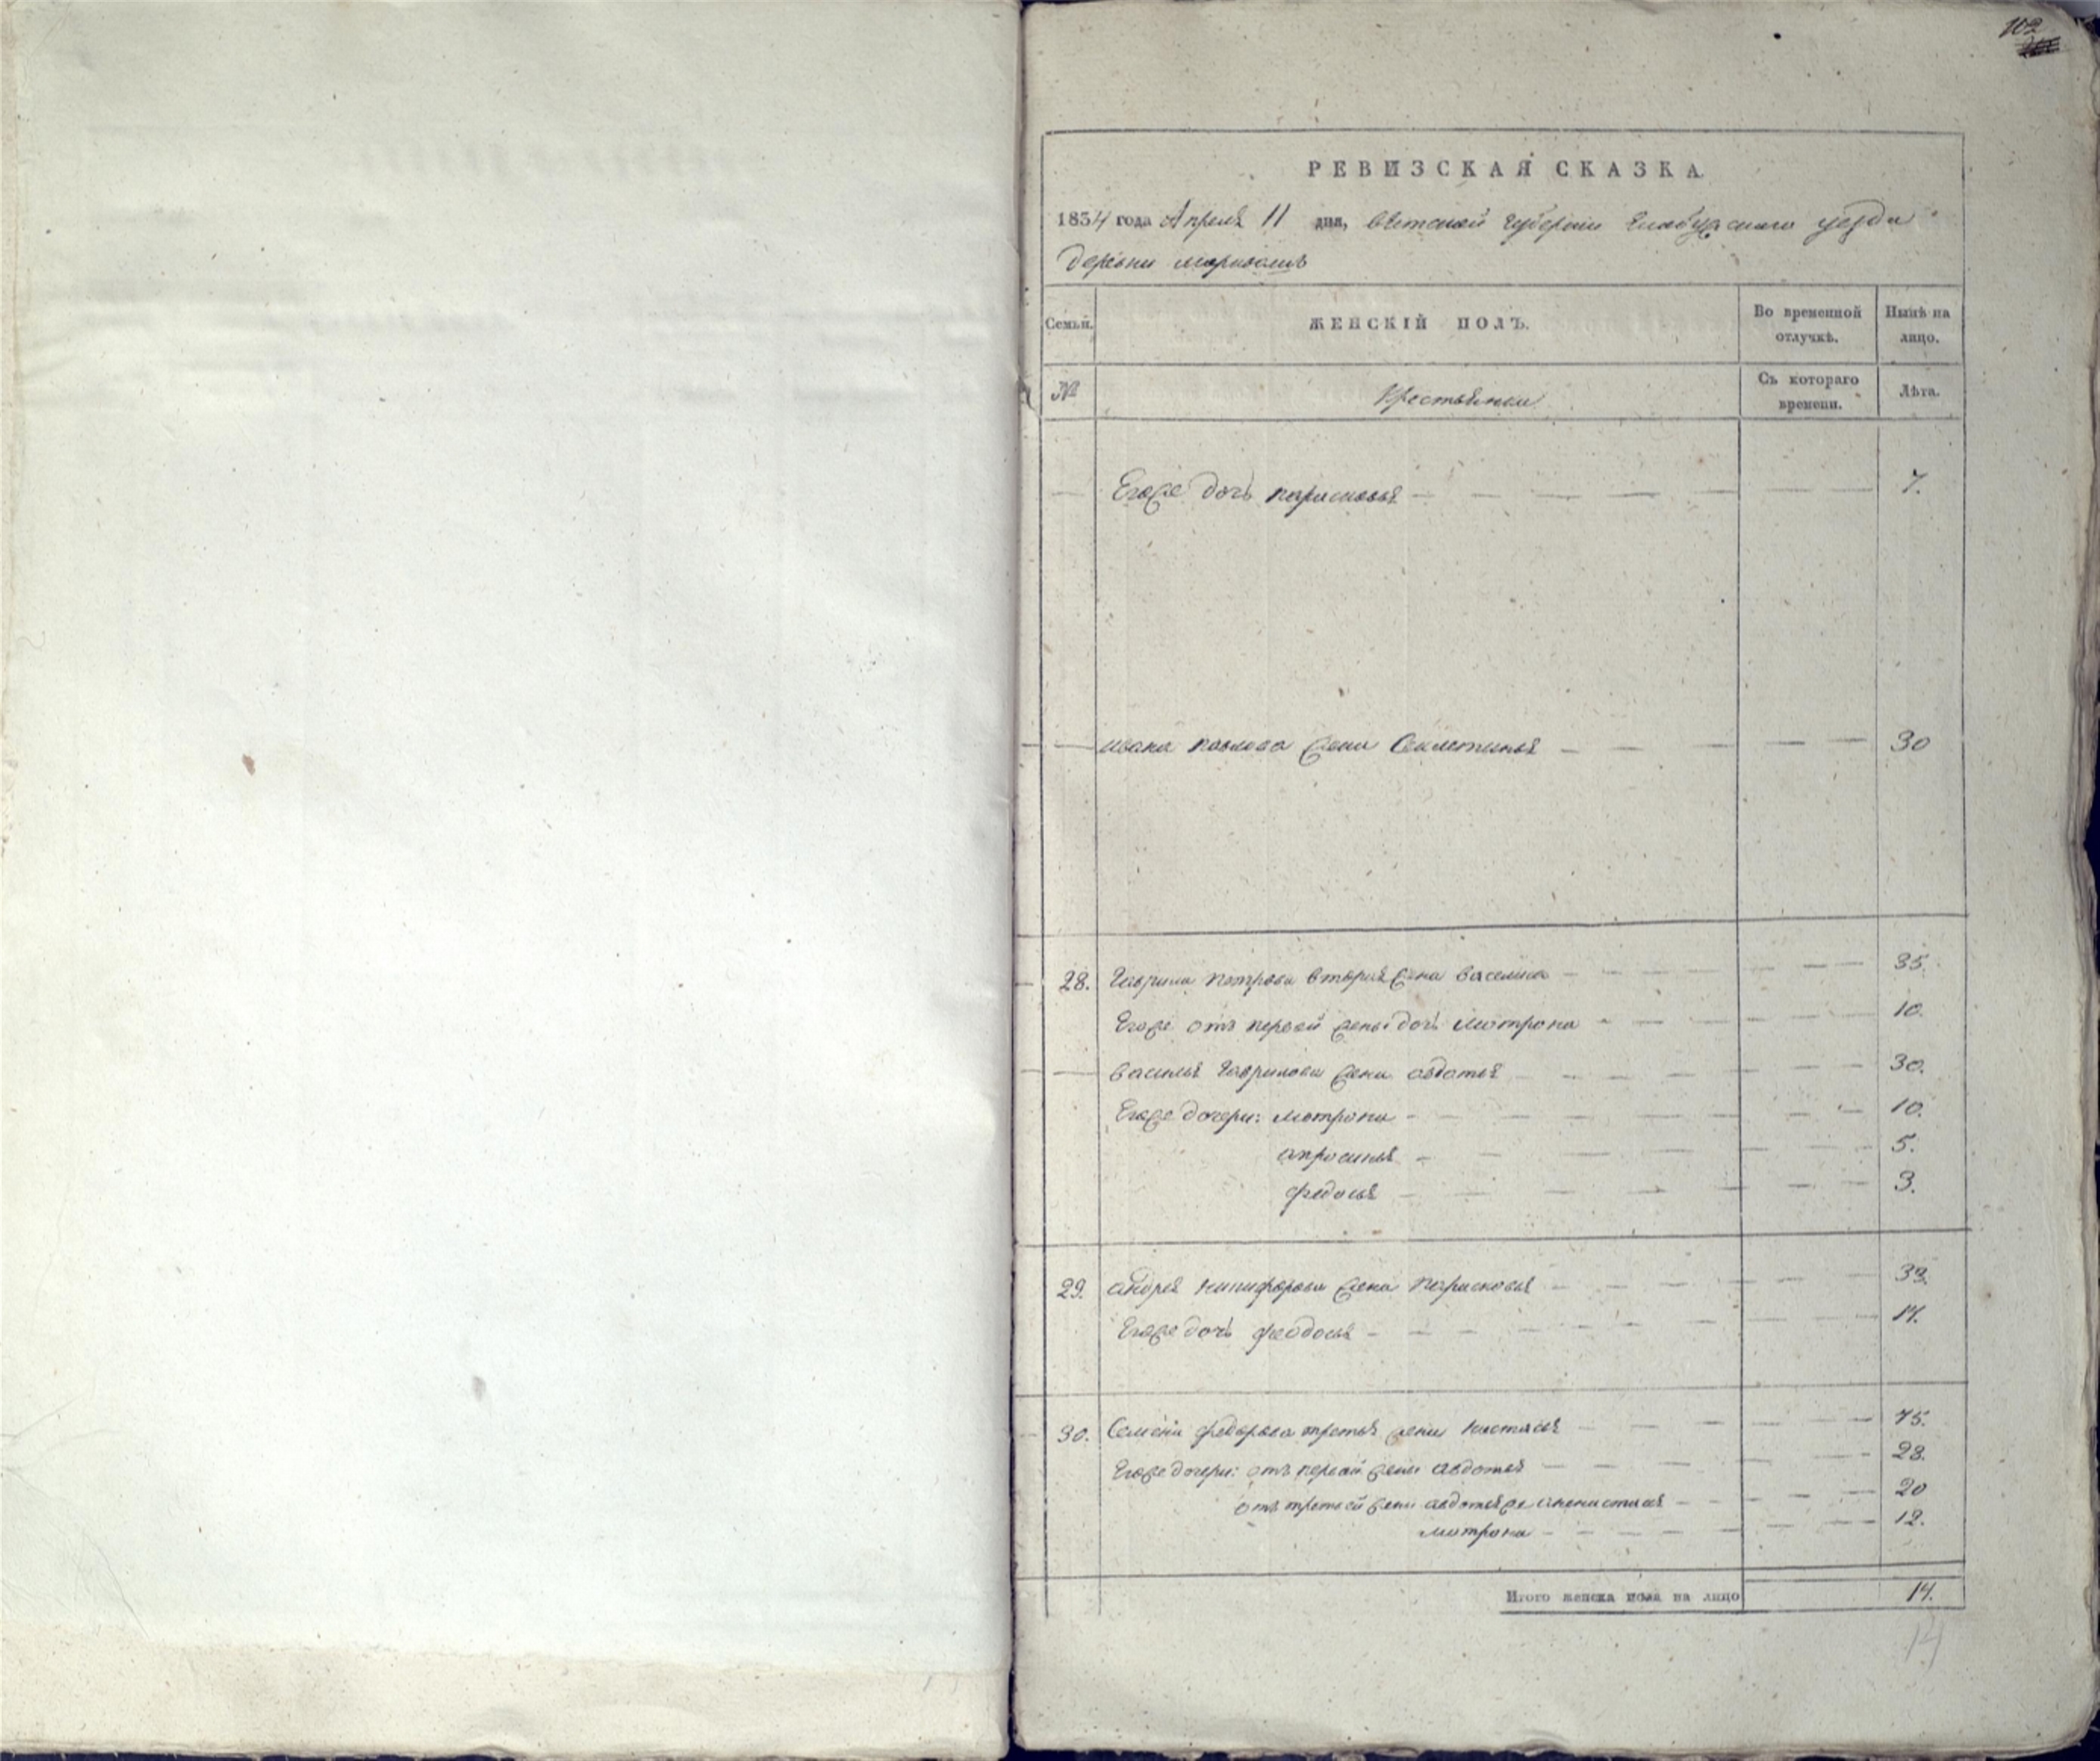 102
РЕВИЗСКАЯ СКАЗКА
1834 года Апреля 11 дня, вятской губернии Елабужскаго уезда
деревни
Семьи.
ЖЕНСКІЙ ПОЛЪ.
Во временной отлучкѣ.
Нынѣ на лицо.
№
Крестьянки
Съ котораго времени.
Лѣта.
Егоже дочь парасковья 7.
ивана павлова жена Секлетинья 30
28. Гаврила петрова вторая жена василиса 35.
Егоже отъ первой жены дочь мотрона 10.
василья гаврилова жена авдотья 30.
Егоже дочери: мотрона 10.
апросинья 5.
федосья 3.
29. андрея никифорова жена парасковья 33.
Егоже дочь феодосья 14.
30. Семена федорова третья жена настасья 45.
Егоже дочери: отъ первой жены авдотья 23.
отъ третьей жены авдотья же анастасья 20
мотрона 12.
Итого женска пола на лицо 14.
14